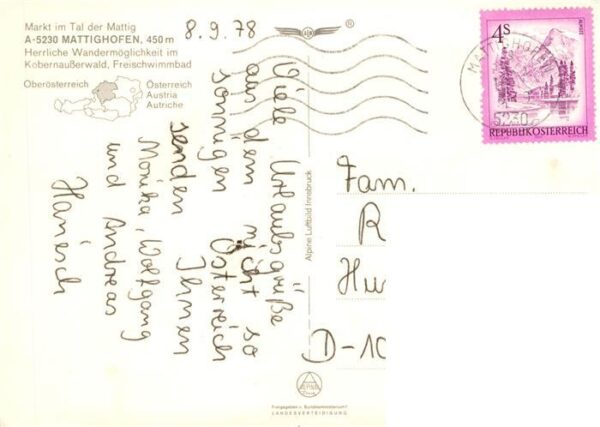 Markt im Tal der Mattig
A-5230 MATTIGHOFEN, 450 m
Herrliche Wandermöglichkeit im
Kobernaußerwald, Freischwimmbad
Oberösterreich
Österreich
Austria
Autriche
8.9.78
®
Viele Urlaubsgrüße
aus dem nicht so
sonnigen Österreich
senden Ihnen
Monika, Wolfgang
und Andreas
Hanisch
Alpine Luftbild Innsbruck
4S
MATTIGHOFEN
5230
REPUBLIK ÖSTERREICH
Fam.
R
Hu
D-10
ALPINE
Freigegeben v. Bundesministerium f.
LANDESVERTEIDIGUNG